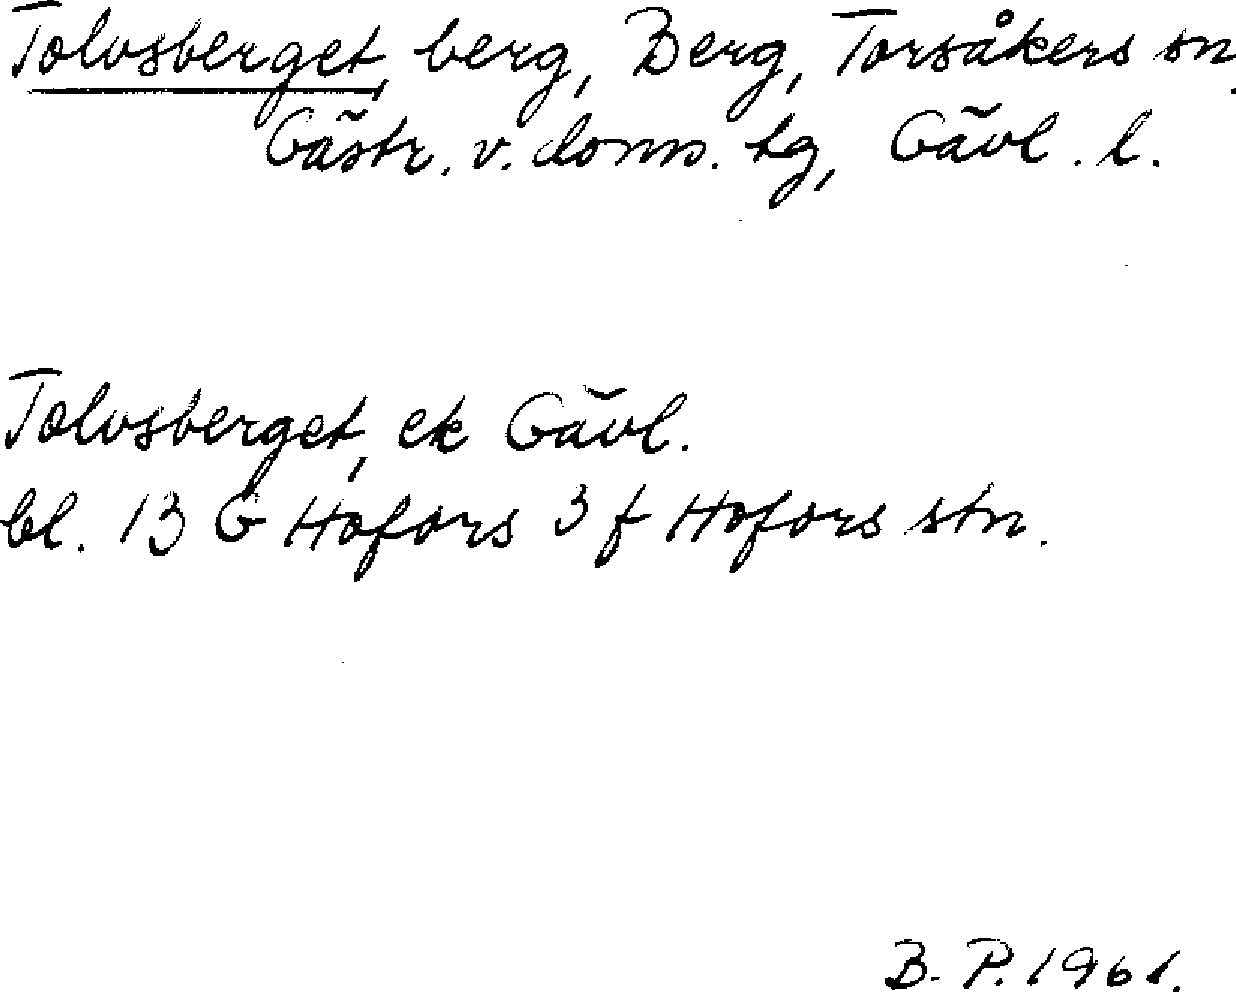 Tolvsberget, berg, Berg, Torsåkers sn.
Gästr. v. doms. tg, Gävl. l.
Tolvsberget, ek Gävl.
bl. 13 G Hofors 3 f Hofors stn.
B. P. 1961.